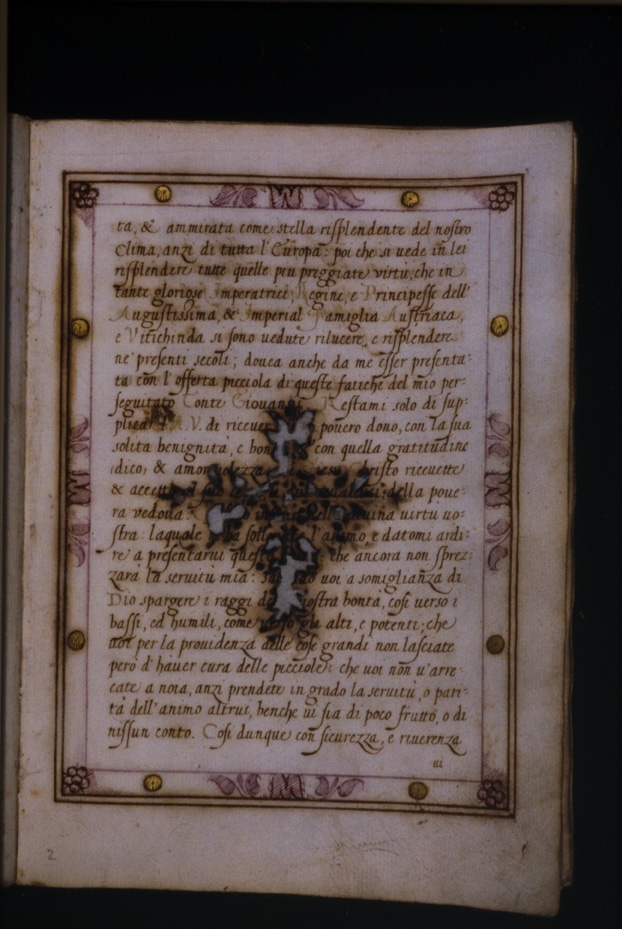 ta, & ammirata come stella risplendente del nostro
Clima, anzi di tutta l'Europa: poi che si uede in lei
risplendere tutte quelle piu preggiate virtù, che in
tante gloriose Imperatrici, Regine, e Principesse dell'
Augustissima, & Imperial Famiglia Austriaca,
e Vitichinda si sono uedute rilucere, e risplendere
ne' presenti secoli; douea anche da me esser presenta-
ta con l'offerta picciola di queste fatiche del mio per-
seguitato Conte Giouanni. Restami solo di sup-
plicar l'A.V. di riceuer pouero dono, con la sua
solita benignità, e con quella gratitudine
dico, & amoreuolezza, Christo riceuette
& accettò della poue-
ra vedoua uina virtù uo-
stra: laquale l'animo, e datomi ardi-
re a presentarui questa che ancora non sprez-
zarà la seruitù mia: uoi a somiglianza di
Dio spargere i raggi uostra bontà, così uerso i
bassi, ed humili, come uerso gli alti, e potenti; che
uoi per la prouidenza delle cose grandi non lasciate
però d'hauer cura delle picciole: che uoi non u'arre-
cate a noia, anzi prendete in grado la seruitù, o pari-
tà dell'animo altrui, benche ui sia di poco frutto, o di
nissun conto. Così dunque con sicurezza, e riuerenza
ui
2